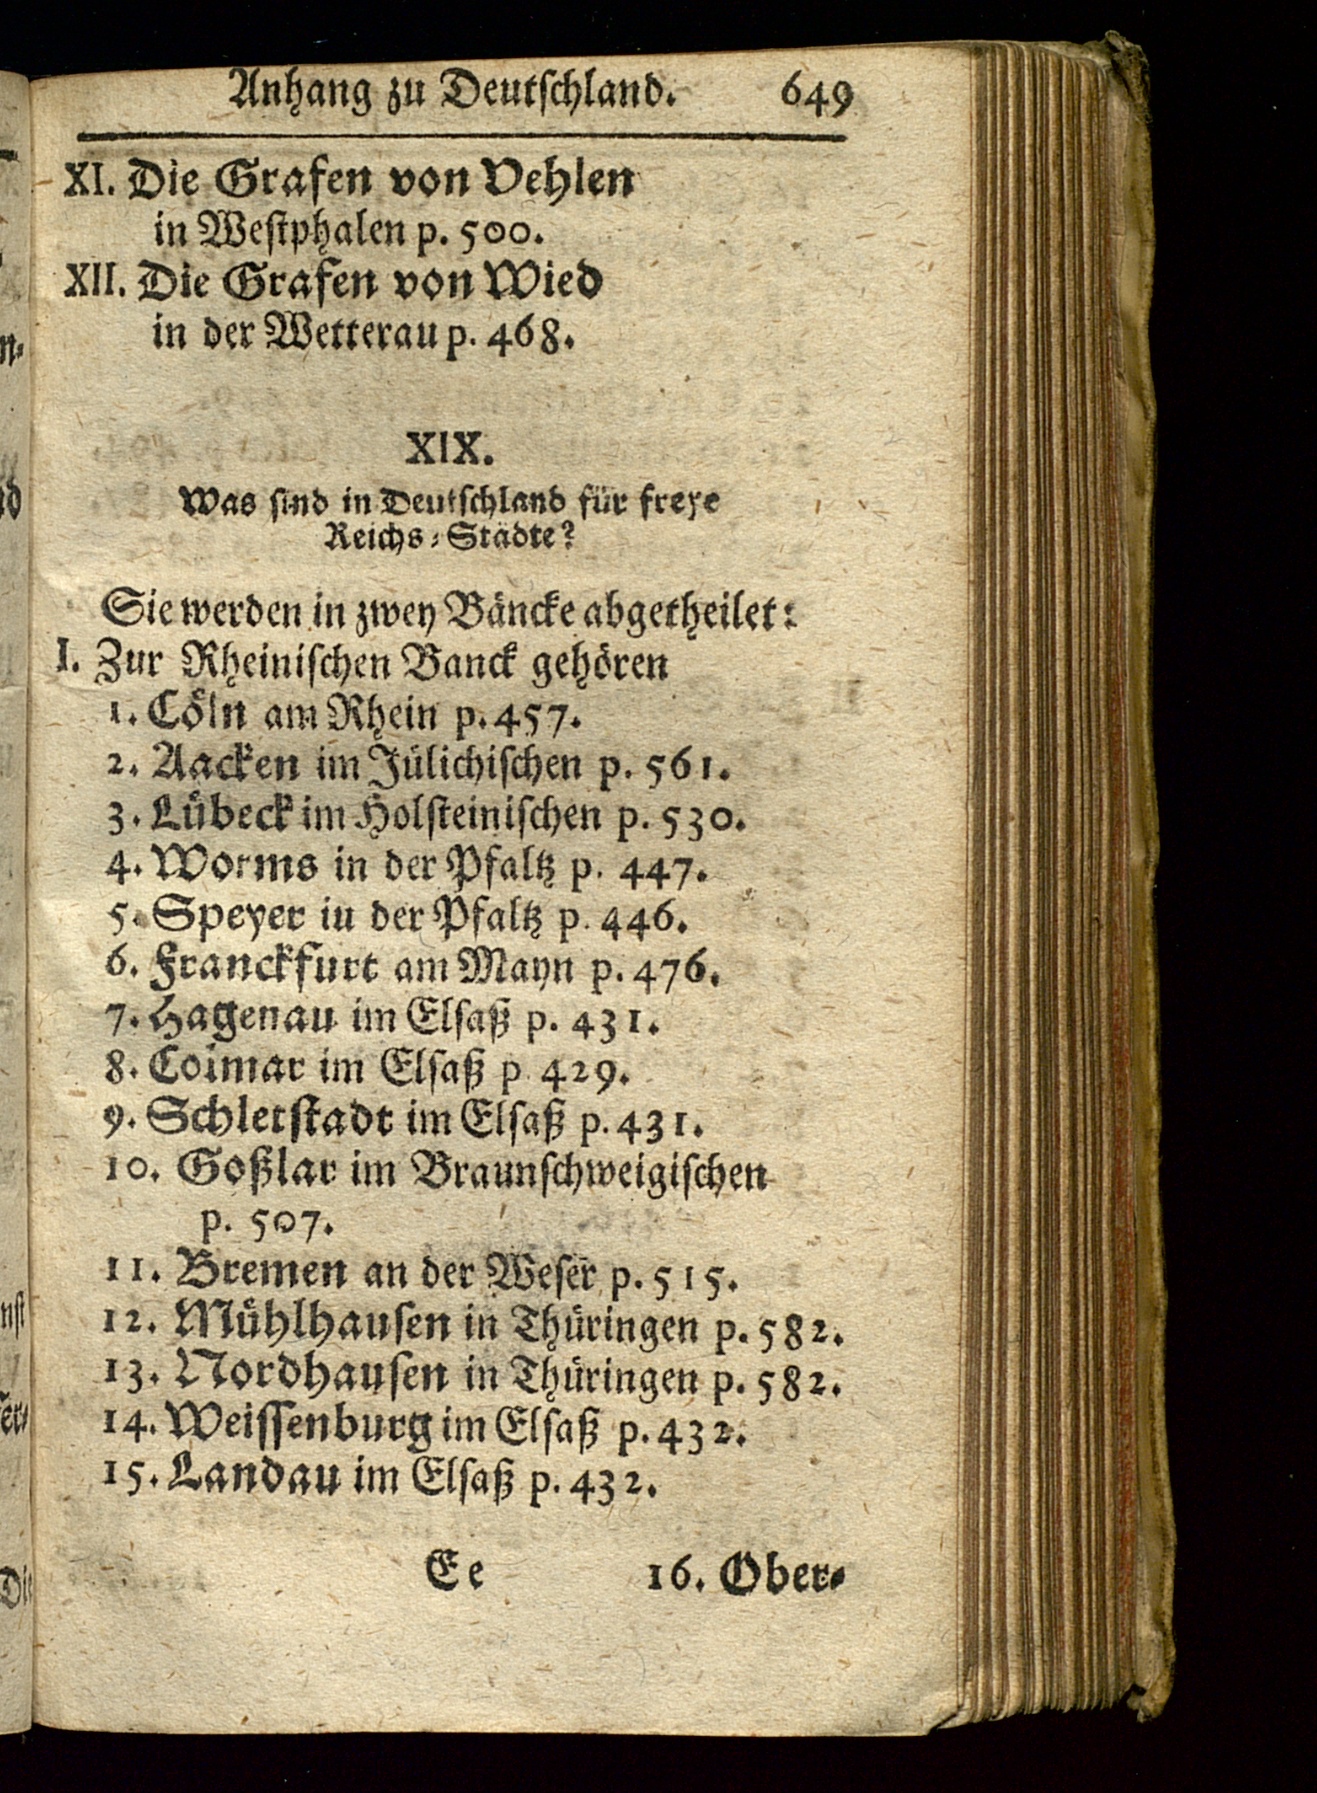 Anhang zu Deutſchland. 649
XI. Die Grafen von Vehlen
in Weſtphalen p. 500.
XII. Die Grafen von Wied
in der Wetterau p. 468.
XIX.
Was ſind in Deutſchland für freye
Reichs-Städte?
Sie werden in zwey Bäncke abgetheilet:
I. Zur Rheiniſchen Banck gehören
1. Cöln am Rhein p. 457.
2. Aacken im Jülichiſchen p. 561.
3. Lübeck im Holſteiniſchen p. 530.
4. Worms in der Pfaltz p. 447.
5. Speyer in der Pfaltz p. 446.
6. Franckfurt am Mayn p. 476.
7. Hagenau im Elſaß p. 431.
8. Colmar im Elſaß p 429.
9. Schletſtadt im Elſaß p. 431.
10. Goßlar im Braunſchweigiſchen
p. 507.
11. Bremen an der Weſer p. 515.
12. Mühlhauſen in Thüringen p. 582.
13. Nordhauſen in Thüringen p. 582.
14. Weiſſenburg im Elſaß p. 432.
15. Landau im Elſaß p. 432.
Ee 16. Ober-